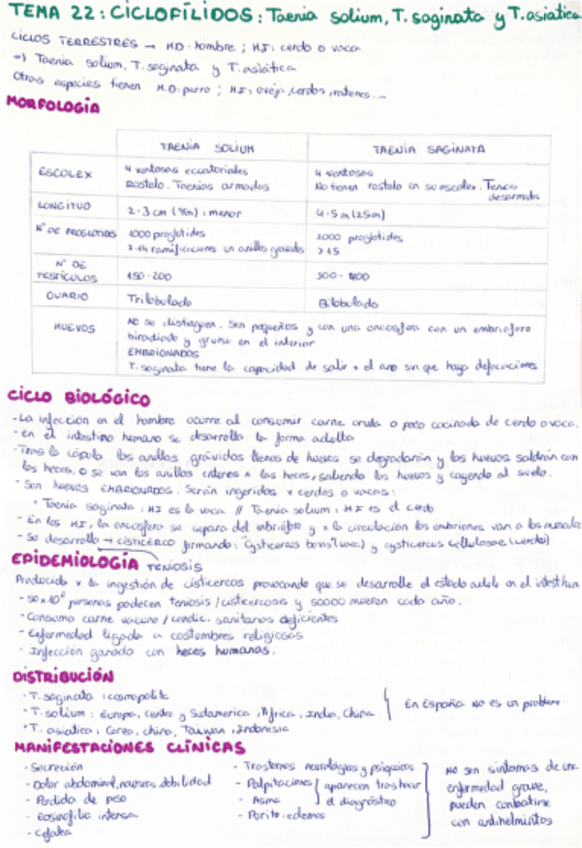 TEMA 22: CICLOFÍLIDOS: Taenia solium, T. saginata y T. asiatica
CICLOS TERRESTRES → HD: hombre; HI: cerdo o vaca
=) Taenia solium, T. saginata y T. asiática
Otras especies tienen HD: perro; HI: oveja, cerdos, ratones...
MORFOLOGÍA
TAENIA SOLIUM
TAENIA SAGINATA
ESCOLEX
4 ventosas ecuatoriales
Rostelo. Taenias armadas
4 ventosas
No tienen rostelo en su escolex. Tenias
desarmadas
LONGITUD
2-3 cm : menor
4-5 m (25m)
Nº DE PROGLOTIDES
1000 proglotides
7- ramificaciones en anillos gravidos
2000 proglotides
>15
Nº DE
TESTICULOS
150-200
300-
OVARIO
Trilobulado
Bilobulado
HUEVOS
NO se distinguen. Son pequeños y con una oncosfera con un embrioforo
biradiado y grueso en el interior
EMBRIONADOS
T. saginata tiene la capacidad de salir x el ano sin que haya defecaciones
CICLO BIOLÓGICO
- La infección en el hombre ocurre al consumir carne cruda o poco cocinada de cerdo o vaca.
- En el intestino humano se desarrolla la forma adulta
- Tras la cópula los anillos grávidos llenos de huevos se degradarán y los huevos saldrán con
las heces, o se van los anillos enteros x las heces, saliendo los huevos y cayendo al suelo.
- Son huevos EMBRIONADOS. Serán ingeridos x cerdos o vacas:
* Taenia saginata: HI es la vaca // Taenia solium: HI es el cerdo
- En los HI, la oncosfera se separa del embrióforo y x la circulación los embriones van a los musculos
- Se desarrolla → CISTICERCO formando: "Cysticercus bovis" (vaca) y cysticercus cellulosae (cerdo)
EPIDEMIOLOGÍA TENIOSIS
Producida x la ingestión de cisticercos provocando que se desarrolle el estado adulto en el intest hum
- 50x10⁶ personas padecen teniosis / cisticercosis y 50000 mueren cada año.
- Consumo carne vacuno / condic. sanitarias deficientes
- Enfermedad ligada a costumbres religiosas
- Infección ganado con heces humanas.
DISTRIBUCIÓN
· T. saginata: cosmopolita
· T. solium: Europa, centro y Sudamerica, Africa, India, China
· T. asiatica: Corea, china, Taiwan, Indonesia
En España no es un problema
MANIFESTACIONES CLÍNICAS
- Secreción
- Dolor abdominal, nauseas, debilidad
- Perdida de peso
- Eosinofilia intensa
- Cefalea
- Trastornos neurológicos y psíquicos
- Palpitaciones
- Asma
aparecen tras hacer
el diagnóstico
- Prurito, edemas
NO son síntomas de una
enfermedad grave,
pueden combatirse
con antihelmintos